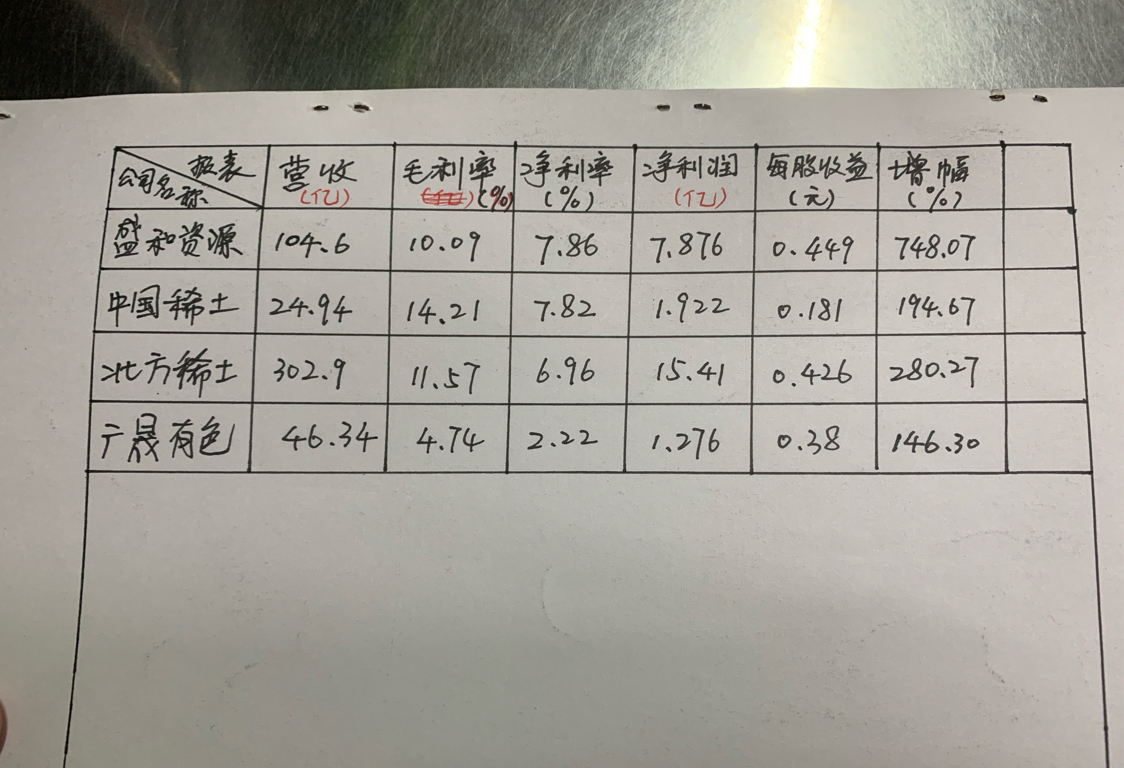 报表 营收 毛利率 净利率 净利润 每股收益 增幅
公司名称 (亿) (%) (%) (亿) (元) (%)
盛和资源 104.6 10.09 7.86 7.876 0.449 748.07
中国稀土 24.94 14.21 7.82 1.922 0.181 194.67
北方稀土 302.9 11.57 6.96 15.41 0.426 280.27
广晟有色 46.34 4.74 2.22 1.276 0.38 146.30